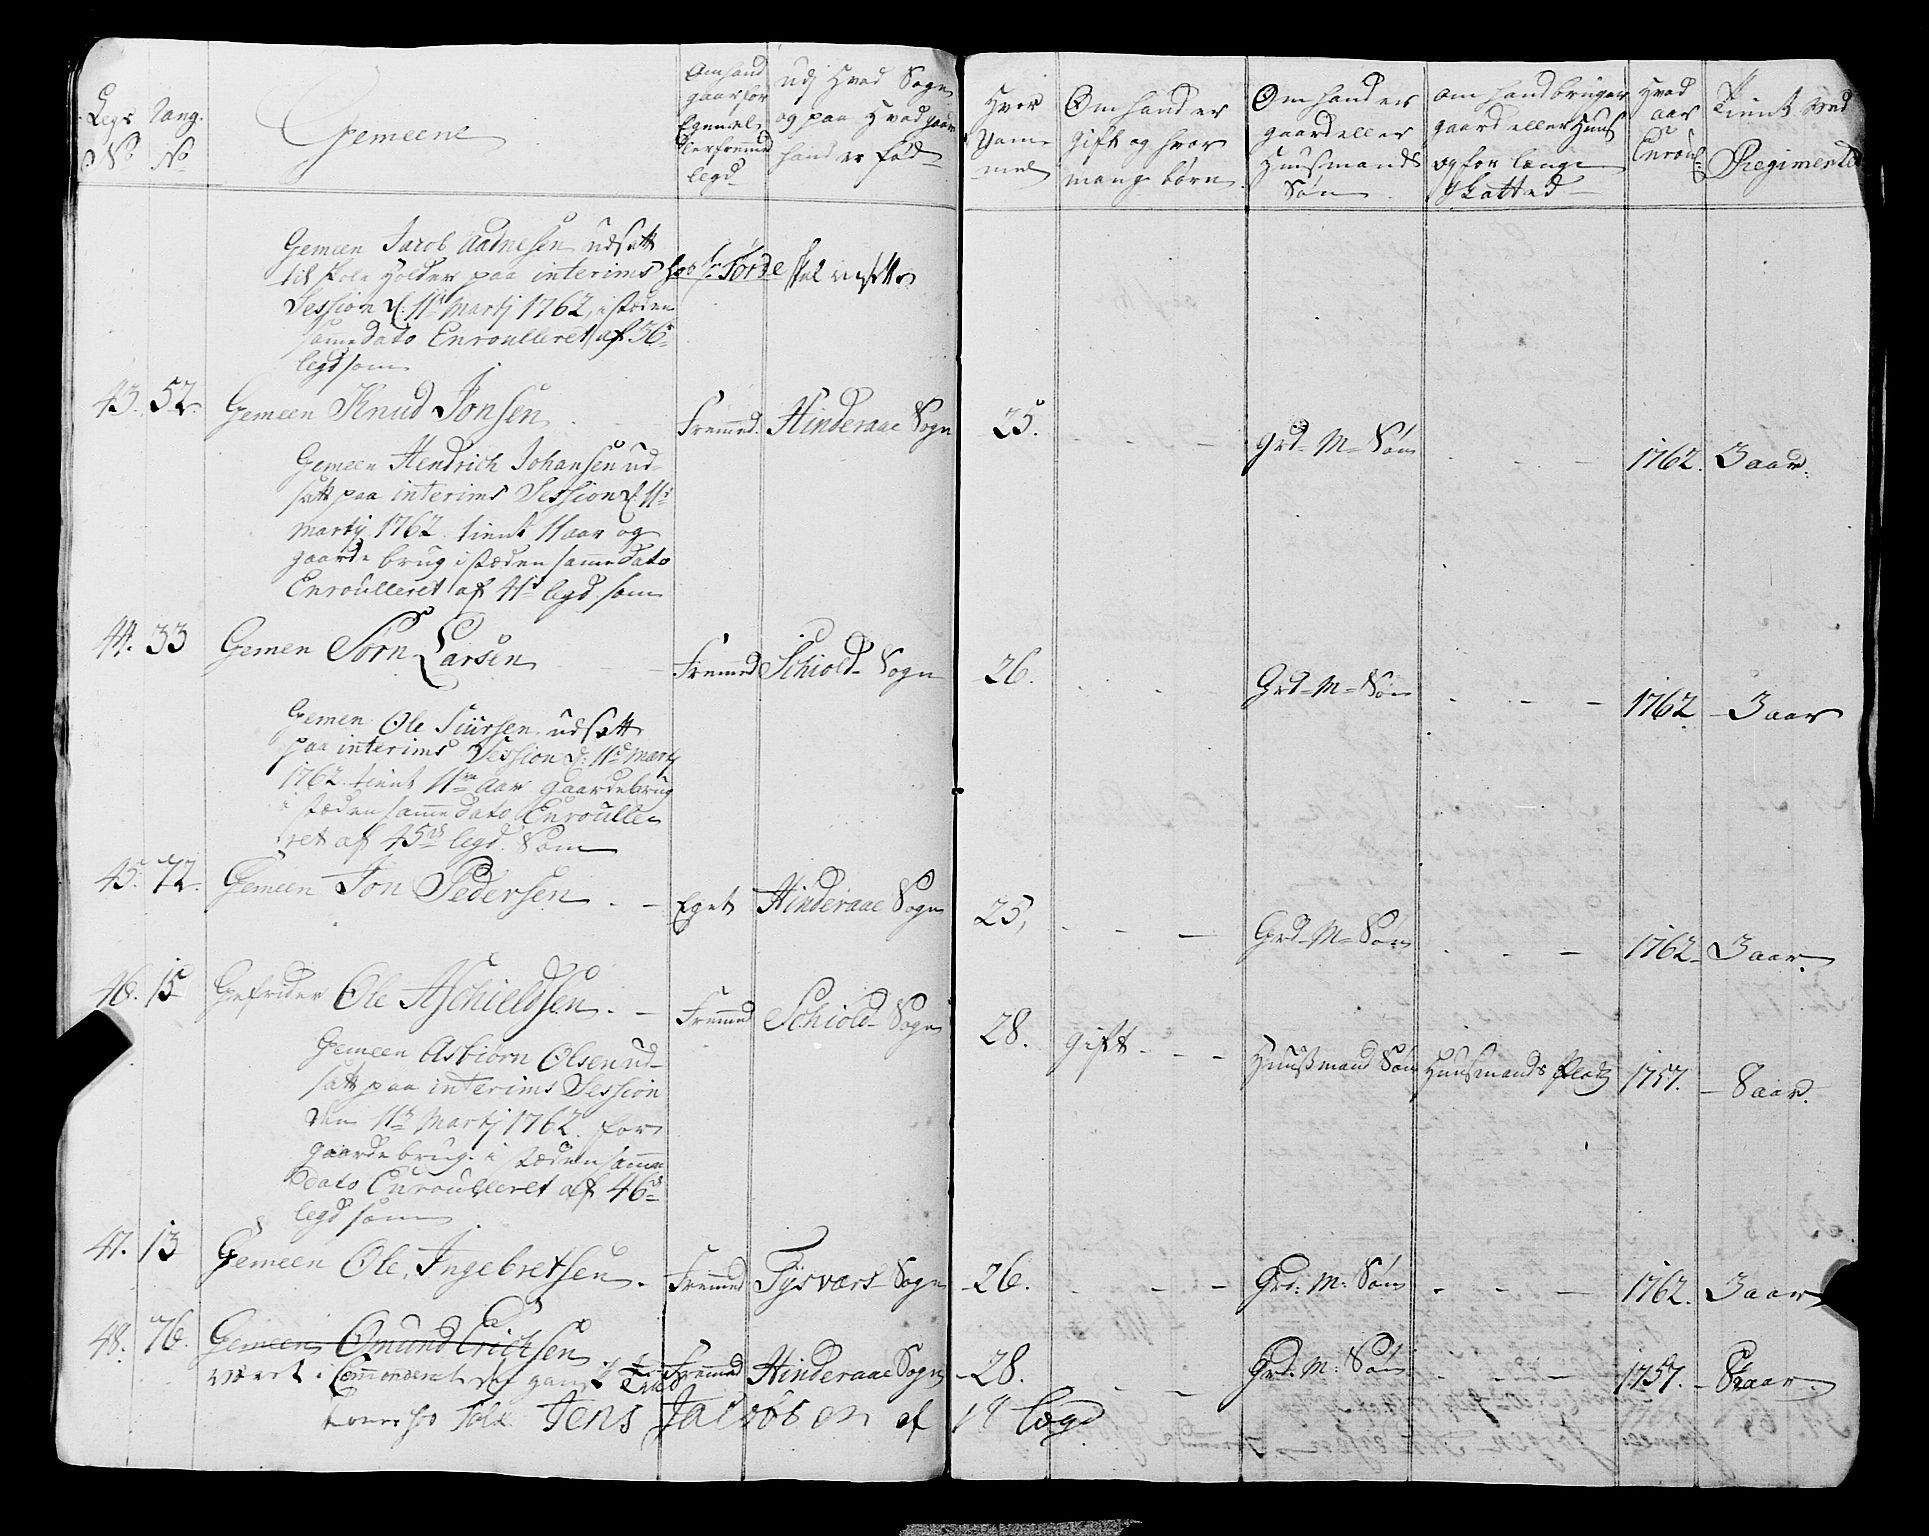 Legs No
Rang No
Gemeene
Om hand gaar for Egen el- ler fremmed legd
Udj Hvad Sogn og paa Hvad gaard hand er fød
Hvor Gam- mel
Om hand er gift og hvor mange børn
Om hand er gaard eller Huusmands Søn
om hand bruger gaard eller Huus og for længe skatted
Hvad aar Enroul:
Tient ved Regimentet
Gemeen Jacob Aadnesen udsatt
til skole Holder paa interims
Session d. 11te Martj 1762, i stæden
samme dato Enroulleret af 36te
legd som
43. 52. Gemeen Knud Jonsen Fremmed. Hinderaae Sogn 25. Grd- M- Søn 1762. 3 aar.
Gemeen Hendrich Johansen ud-
satt paa interims Session d. 11te
martj 1762 tient 11 aar og
gaarde brug i stæden samme dato
Enroulleret af 41te legd som
44. 33 Gemen Sørn Larsen Fremmed Schiold- Sogn 26. Grd- M- Søn 1762 3 aar
Gemen Ole Siursen udsatt
paa interims Session d: 11te Martj
1762 tient 11 aar gaardebrug
i stæden samme dato Enroulle
ret af 45de legd Som
45. 72. Gemeen Jon Pedersen Eget Hinderaae Sogn 25, Grd- M- Søn 1762 3 aar
46. 15 Gefrider Ole Aschieldsen Fremmed Schiold- Sogn 28. gift Huusmand Søn Huusmands Platz 1757. 8 aar.
Gemeen Asbiørn Olsen ud-
satt paa interims Session
den 11te Martj 1762 for
gaarde brug i stæden samme
dato Enroulleret af 46de
legd som
47. 13 Gemeen Ole Ingebretsen Fremmed Tysvars Sogn 26. Grd: M: Søn 1762. 3 aar
48. 76. Gemeen Omund Erichsen Fremmed Hinderaae Sogn 28. Grd: M: Søn 1757. 8 aar.
Jens Jacobsen af 14 Lægd